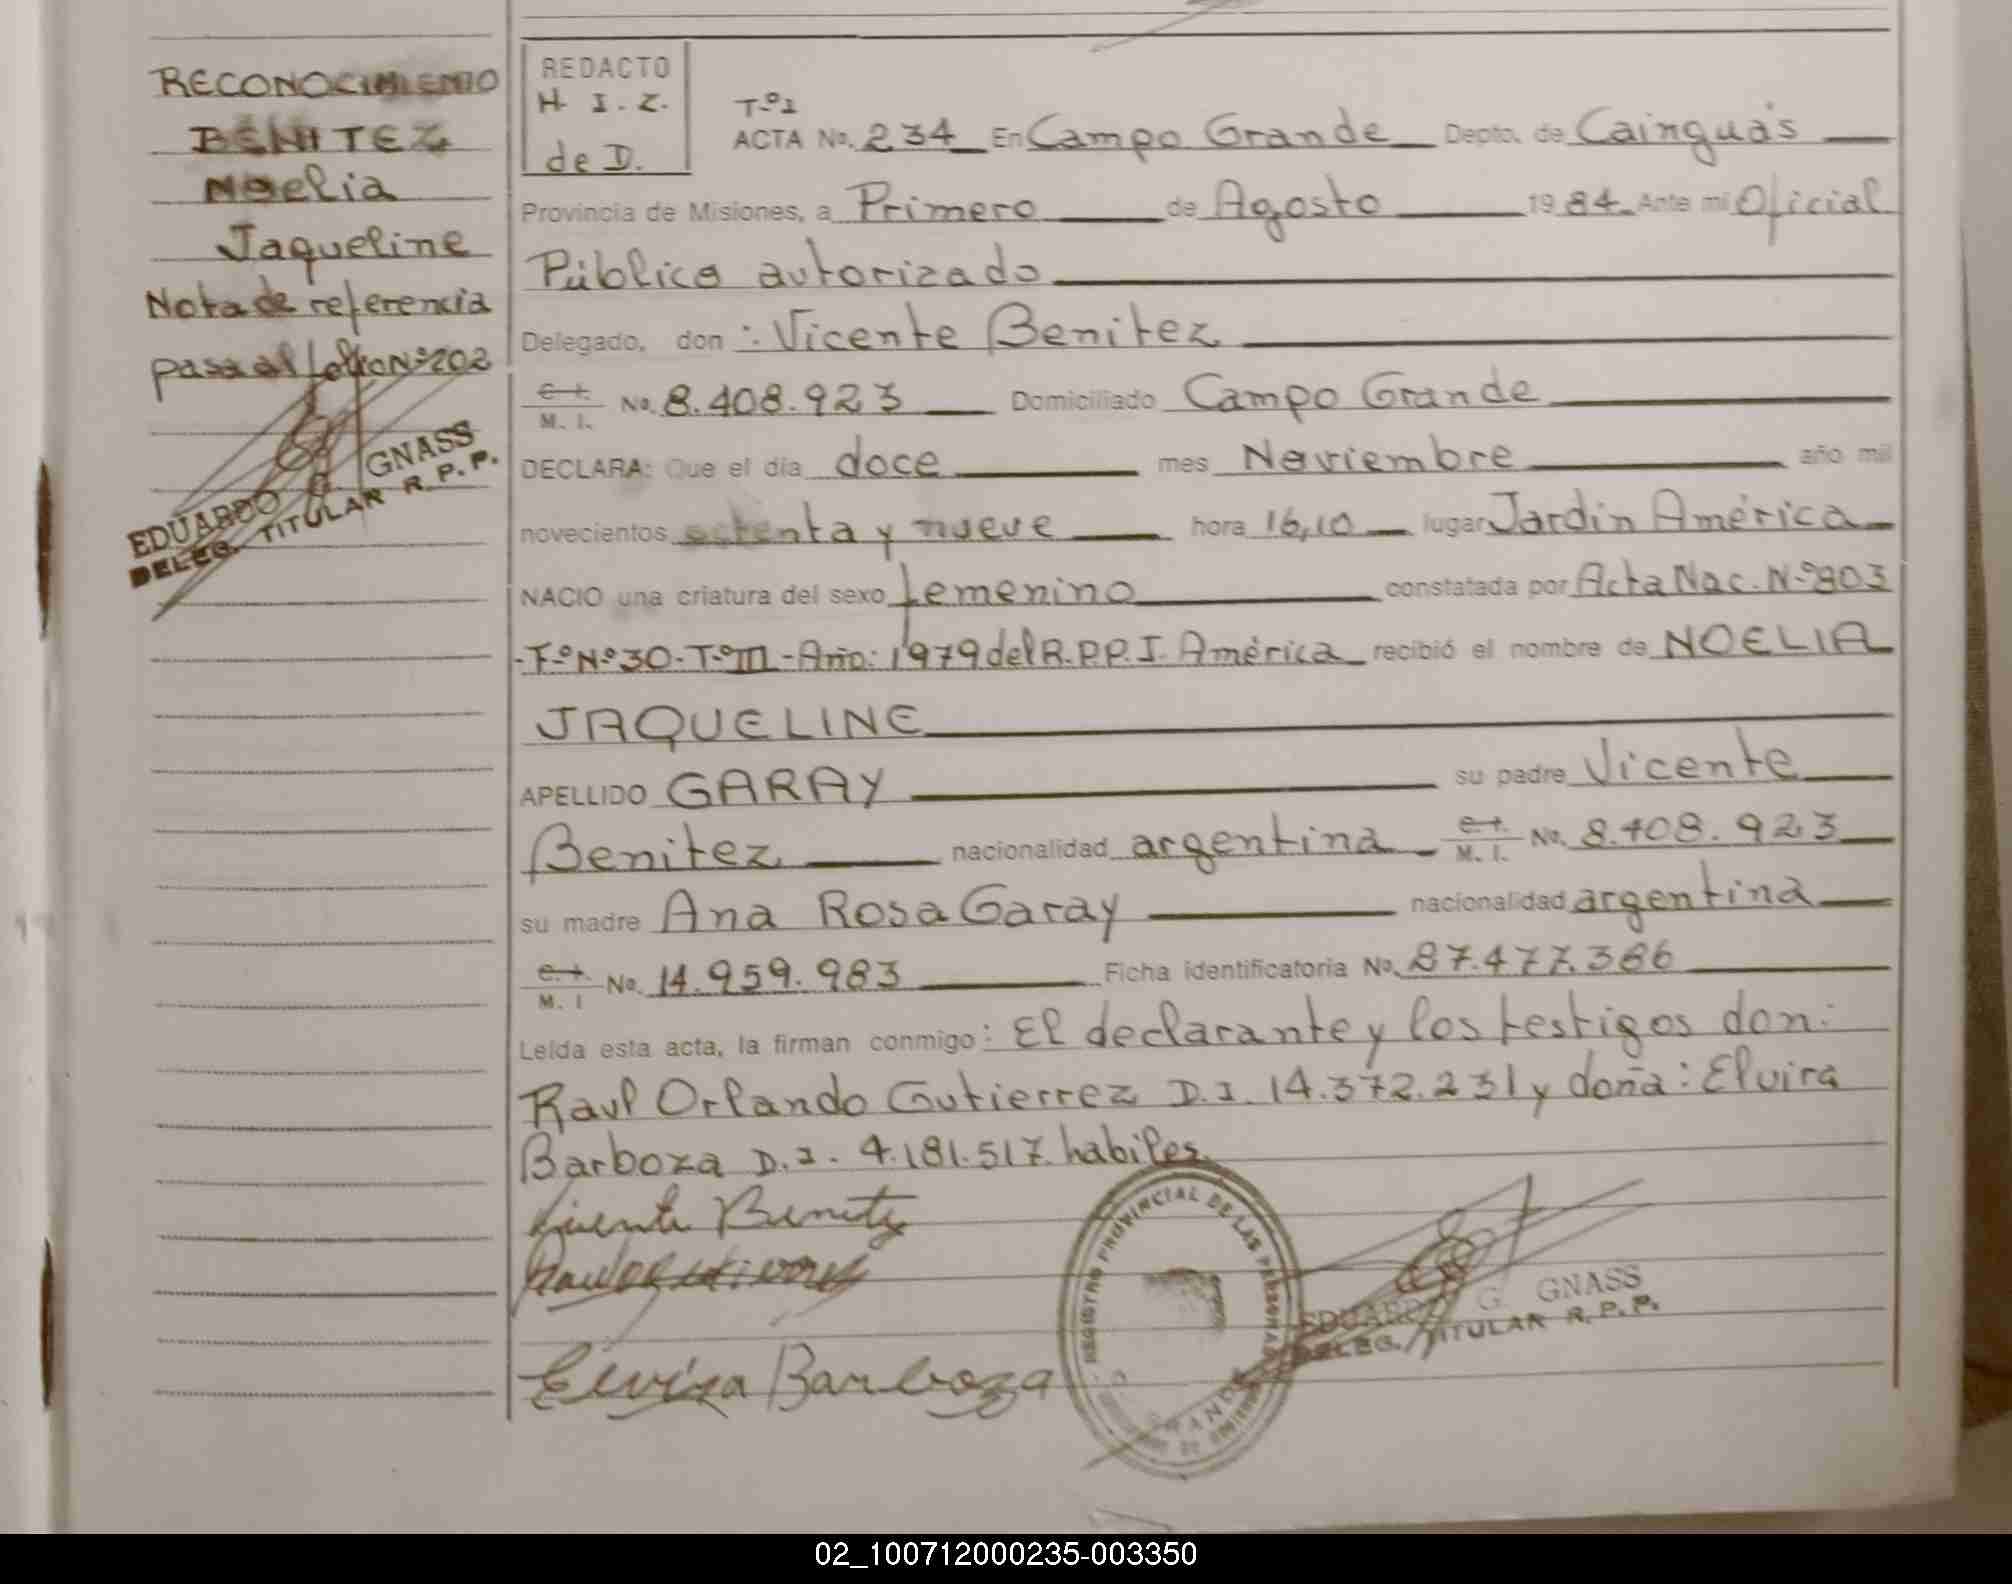 RECONOCIMIENTO
BENITEZ
Noelia
Jaqueline
Nota de referencia
pasa al folio Nº 202
EDUARDO G. GNASS
DELEG. TITULAR R. P. P.
REDACTO
H. I. Z.
de D.
Tº1
ACTA No. 234 En Campo Grande Depto. de Cainguás
Provincia de Misiones, a Primero de Agosto 1984. Ante mi Oficial
Público autorizado
Delegado, don : Vicente Benitez
C. I. / M. I. No. 8.408.923 Domiciliado Campo Grande
DECLARA: Que el día doce mes Noviembre año mil
novecientos setenta y nueve hora 16,10 lugar Jardín América
NACIO una criatura del sexo femenino constatada por Acta Nac. Nº 803
-Fº Nº 30-Tº III-Año: 1979 del R.P.P.J. América recibió el nombre de NOELIA
JAQUELINE
APELLIDO GARAY su padre Vicente
Benitez nacionalidad argentina C. I. / M. I. No. 8.408.923
su madre Ana Rosa Garay nacionalidad argentina
C. I. / M. I No. 14.959.983 Ficha identificatoria No. 87.477.386
Leída esta acta, la firman conmigo: El declarante y los testigos don:
Raul Orlando Gutierrez D.I. 14.372.231 y doña: Elvira
Barboza D.I. 4.181.517 habiles.
Vicente Benitez
Elvira Barboza
REGISTRO PROVINCIAL DE LAS PERSONAS
EDUARDO G. GNASS
DELEG. TITULAR R. P. P.
02_100712000235-003350